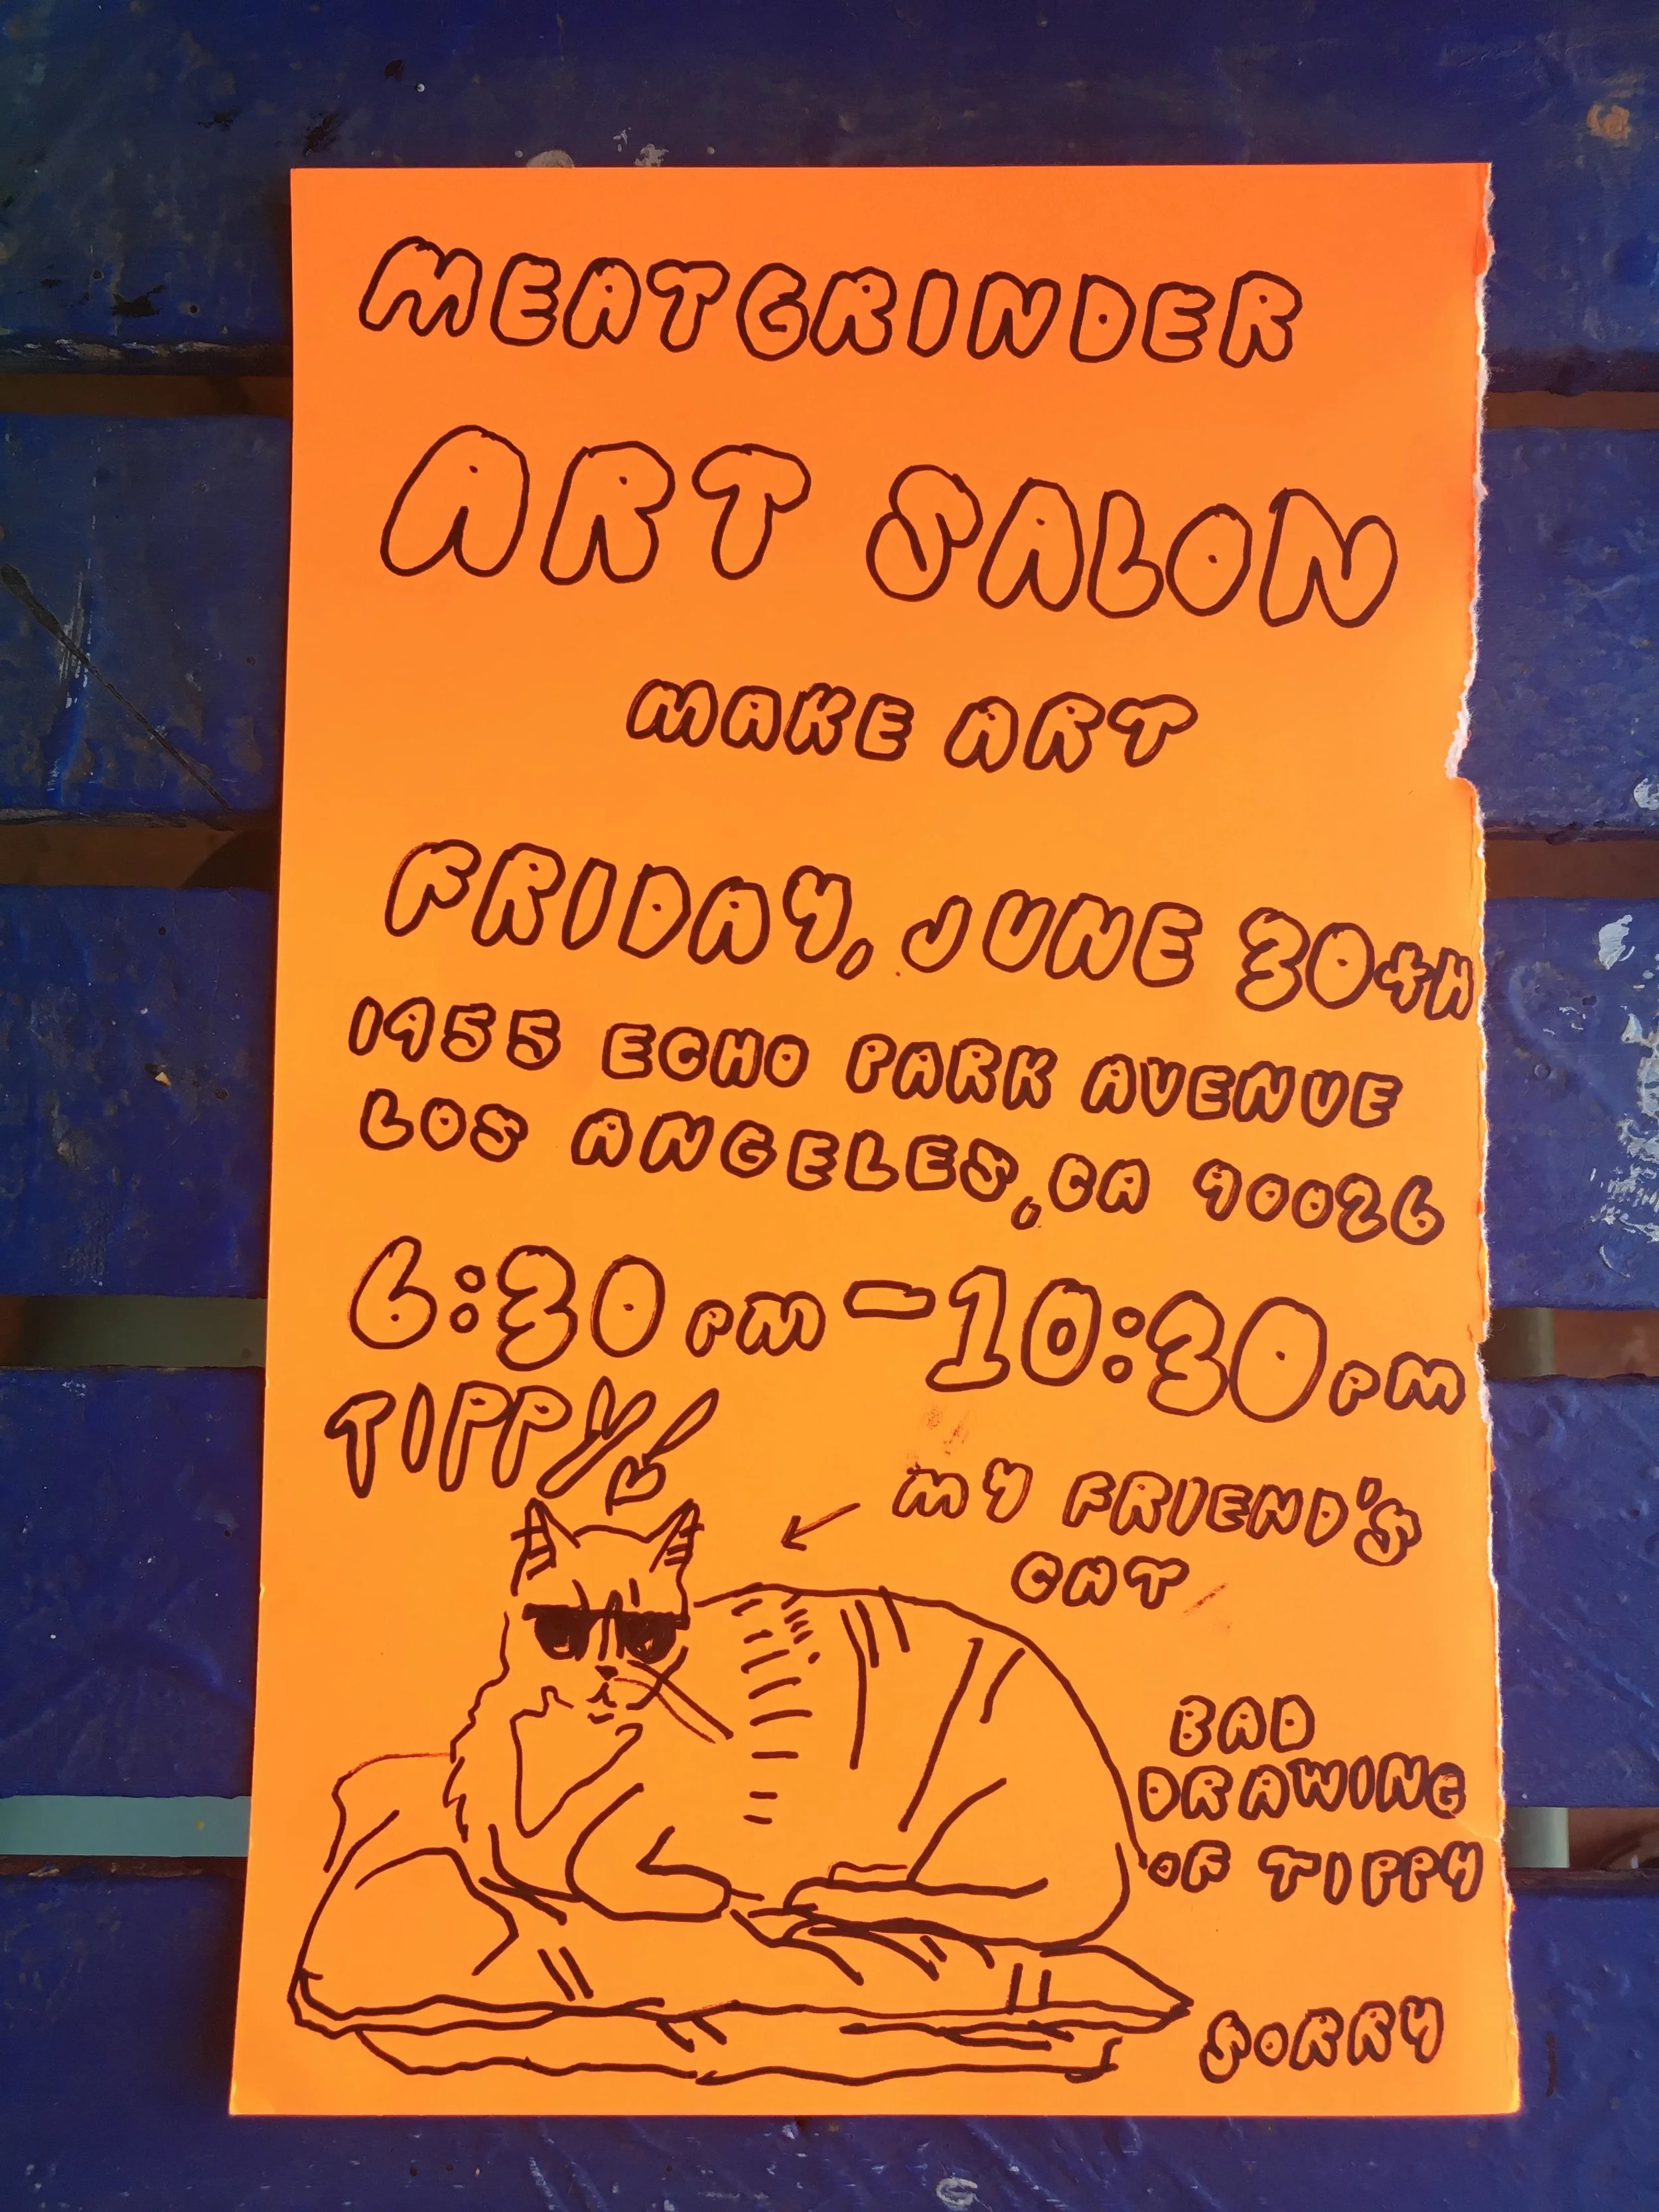 MEATGRINDER
ART SALON
MAKE ART
FRIDAY, JUNE 30th
1955 ECHO PARK AVENUE
LOS ANGELES, CA 90026
6:30 PM - 10:30 PM
TIPPY
MY FRIEND'S
CAT
BAD
DRAWING
OF TIPPY
SORRY